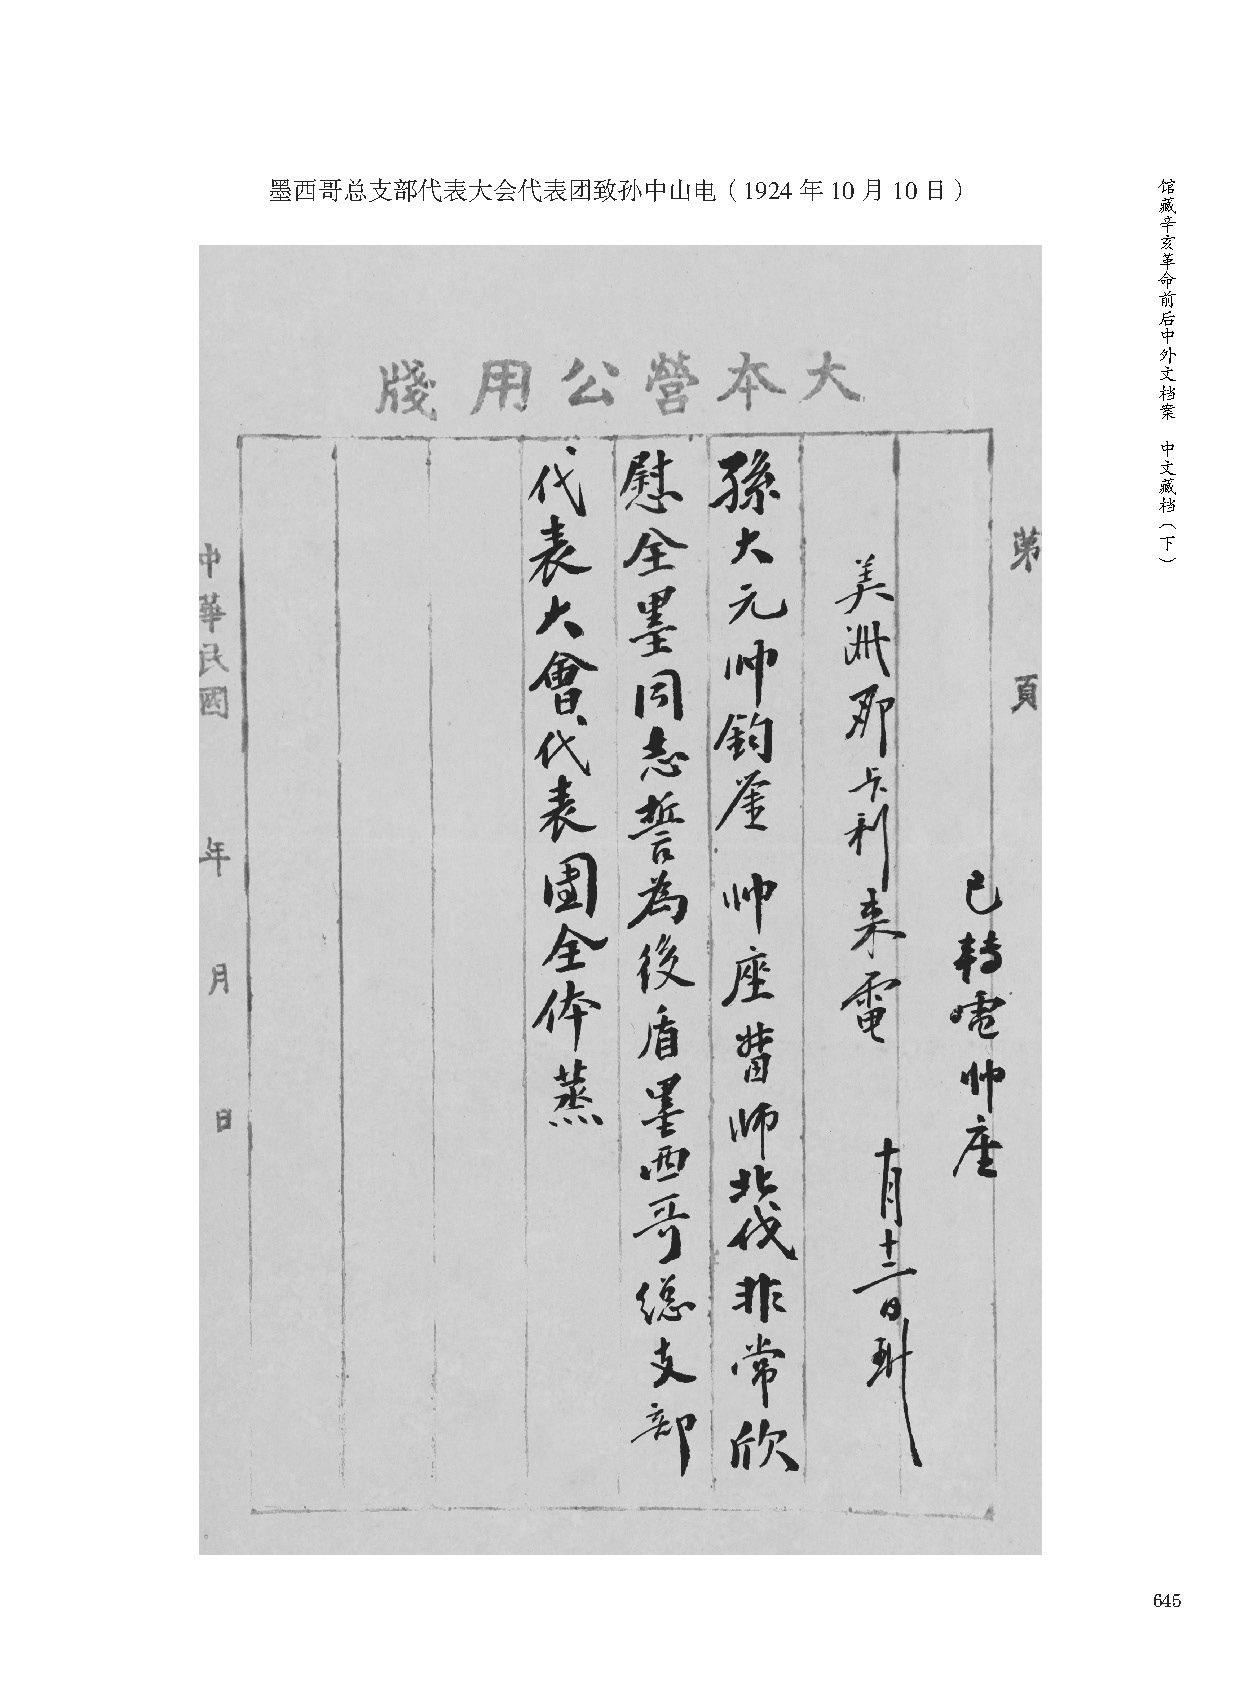 墨西哥总支部代表大会代表团致孙中山电（1924年10月10日）
馆藏辛亥革命前后中外文档案 中文藏档（下）
大本營公用牋
第 頁
已轉電帅座
美洲那卡利来電 十月十三日到
孫大元帅鈞鉴 帅座督师北伐非常欣
慰全墨同志誓為後盾墨西哥總支部
代表大會代表團全体蒸
中華民國 年 月 日
645